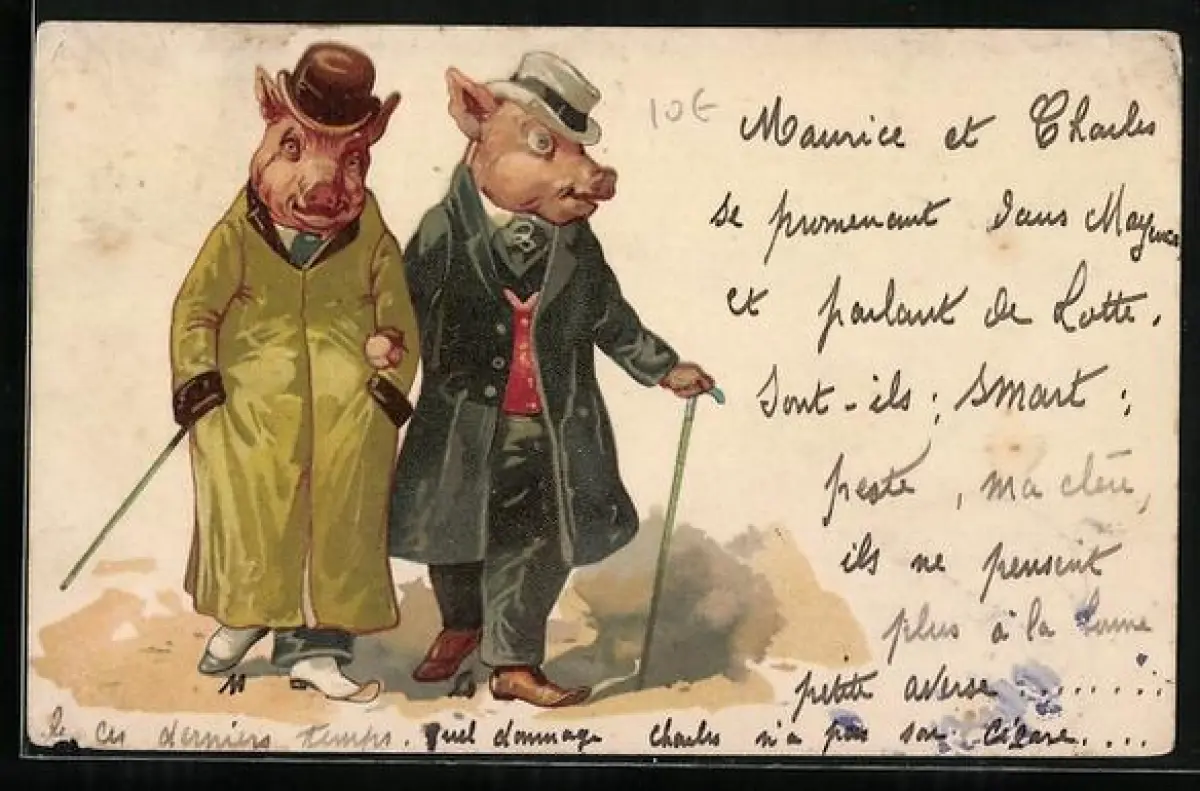 10€
Maurice et Charles
se promenant dans Mayence
et parlant de Lotte.
Sont-ils ; smart ;
peste, ma chère,
ils ne pensent
plus à la bonne
petite averse ........
de ces derniers temps. Quel dommage Charles n'a pas son cigare....
M